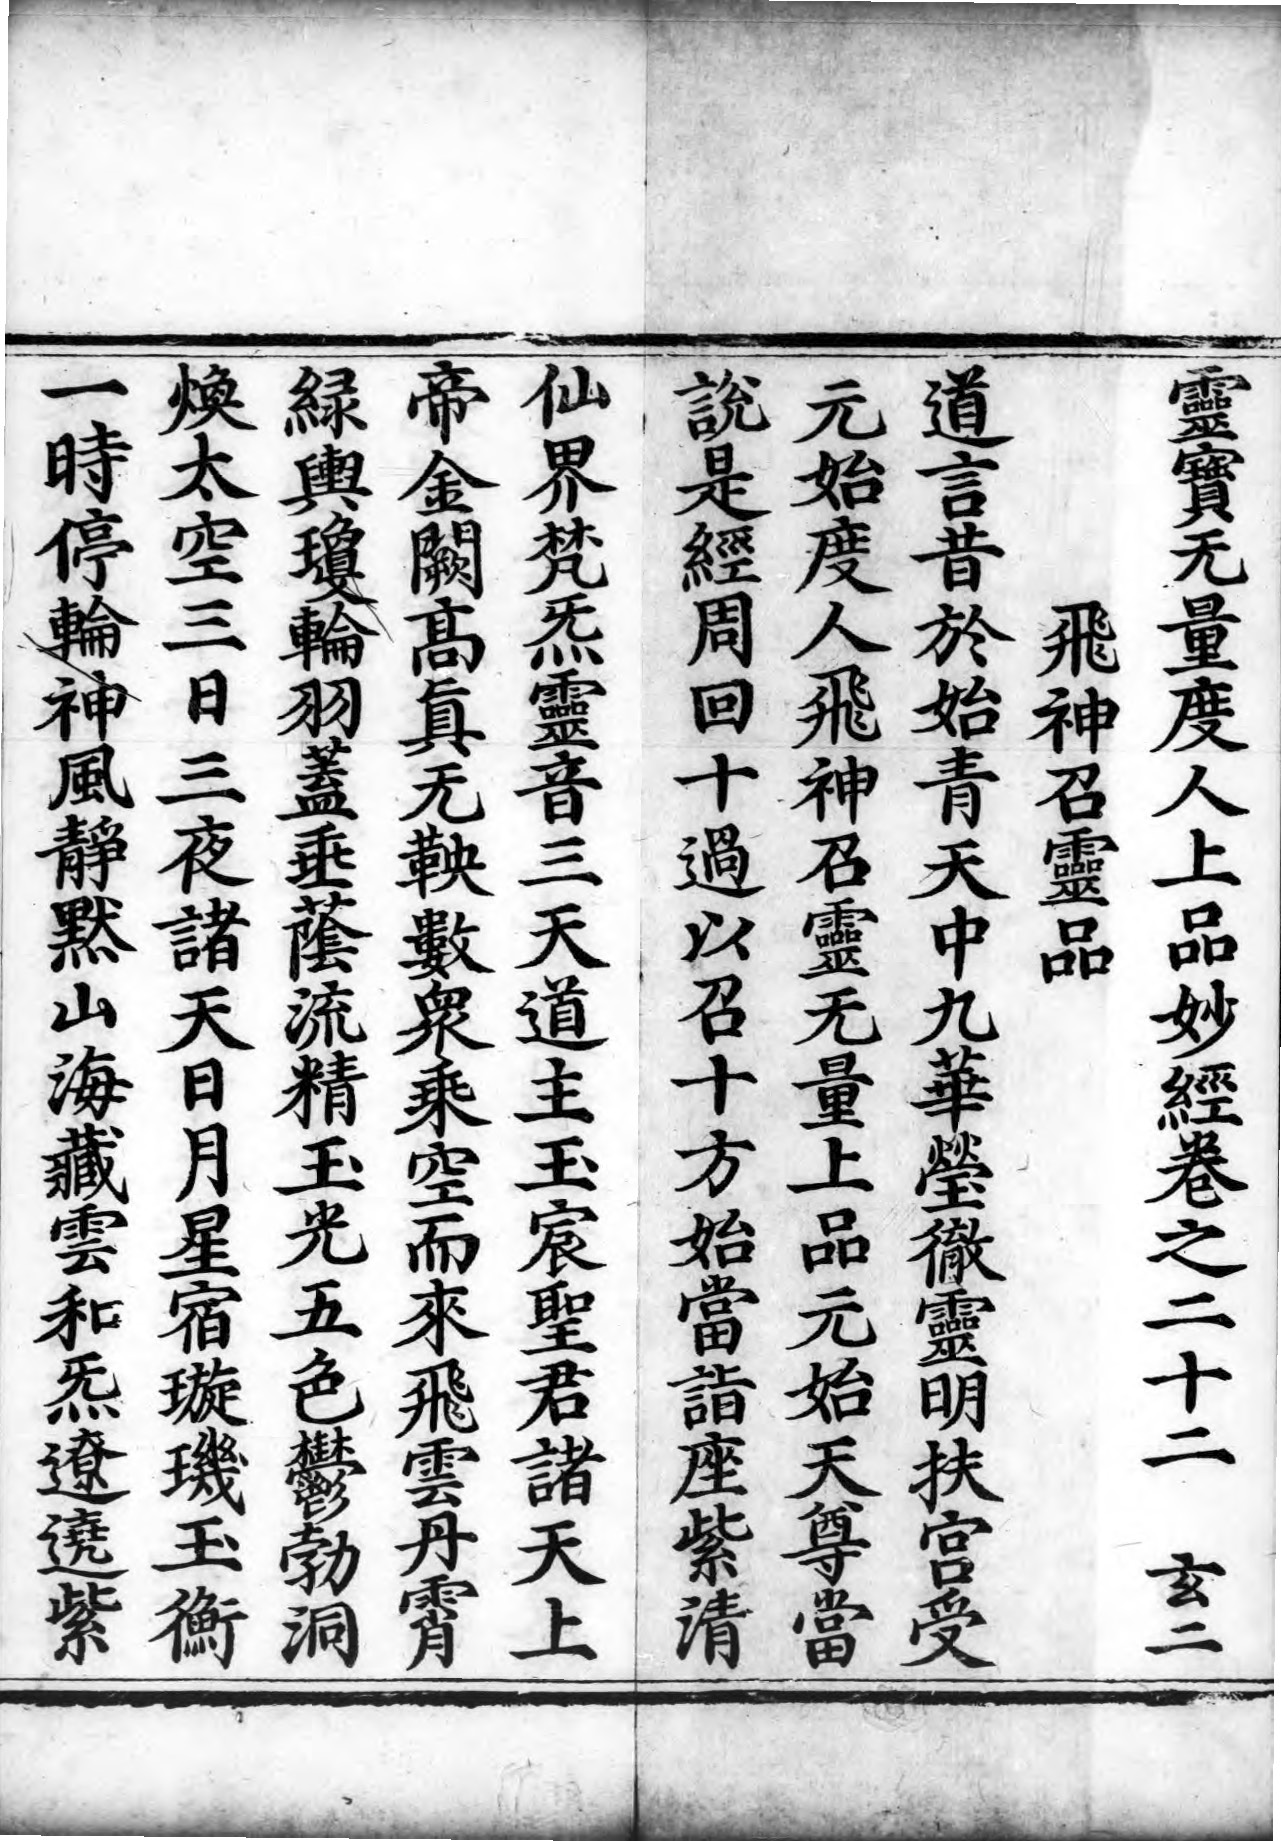 靈寶无量度人上品妙經卷之二十二　玄二
飛神召靈品
道言昔於始青天中九華瑩徹靈明扶宮受
元始度人飛神召靈无量上品元始天尊當
說是經周回十過以召十方始當詣座紫清
仙界梵炁靈音三天道主玉宸聖君諸天上
帝金闕高真无鞅數衆乘空而來飛雲丹霄
緑輿瓊輪羽蓋垂蔭流精玉光五色鬱勃洞
煥太空三日三夜諸天日月星宿璇璣玉衡
一時停輪神風靜默山海藏雲和炁遼遶紫